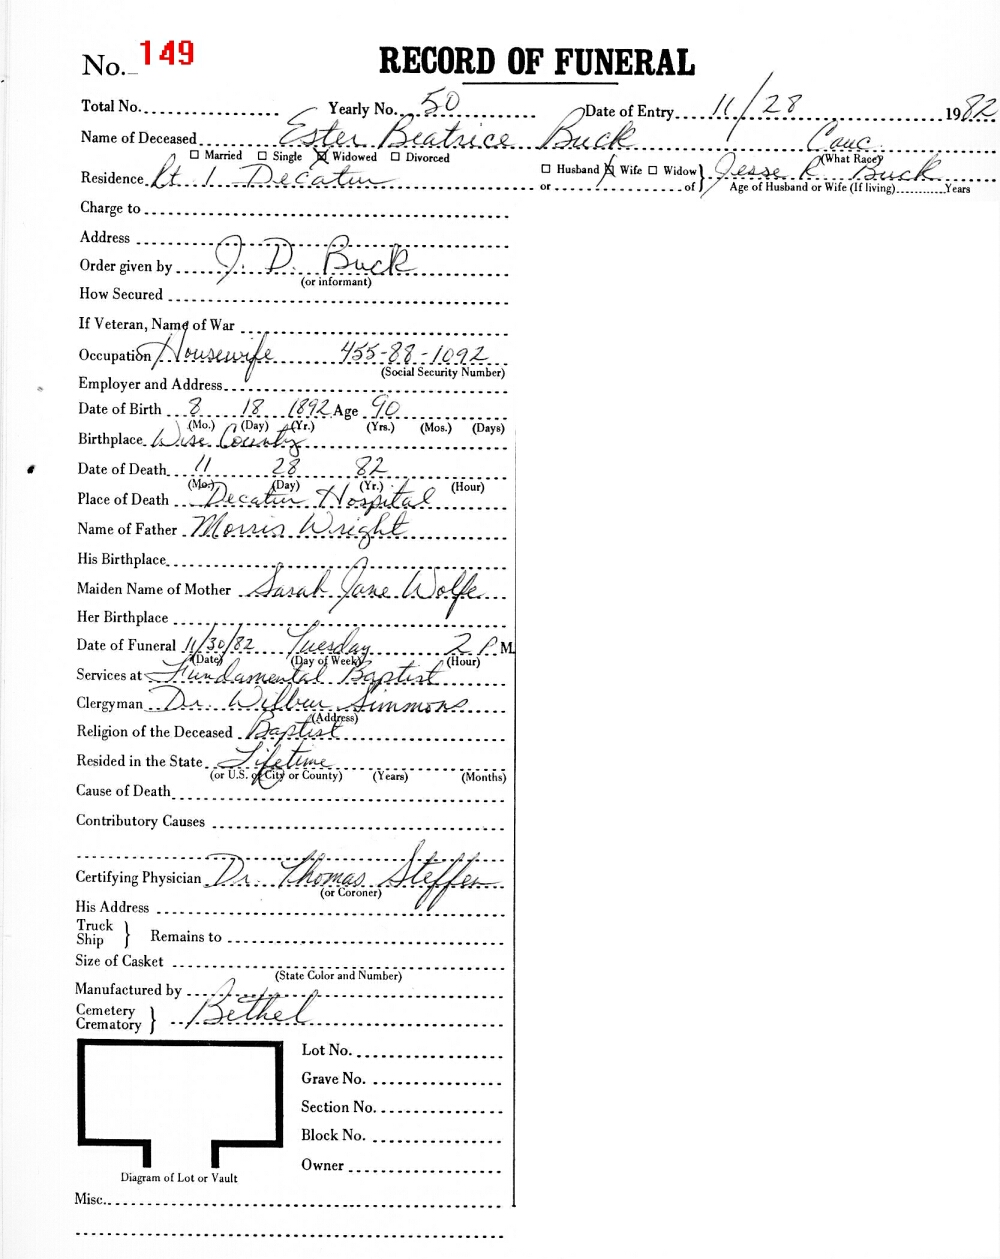 No. 149 RECORD OF FUNERAL
Total No. Yearly No. 50 Date of Entry 11/28 1982
Name of Deceased Ester Beatrice Buck Cauc.
☐ Married ☐ Single ☒ Widowed ☐ Divorced (What Race)
Residence Rt. 1 Decatur ☐ Husband ☒ Wife ☐ Widow } Jesse R. Buck
or of Age of Husband or Wife (If living) Years
Charge to
Address
Order given by J. D. Buck
(or informant)
How Secured
If Veteran, Name of War
Occupation Housewife 455-88-1092
(Social Security Number)
Employer and Address
Date of Birth 8 18 1892 Age 90
(Mo.) (Day) (Yr.) (Yrs.) (Mos.) (Days)
Birthplace Wise County
Date of Death 11 28 82
(Mo.) (Day) (Yr.) (Hour)
Place of Death Decatur Hospital
Name of Father Morris Wright
His Birthplace
Maiden Name of Mother Sarah Jane Wolfe
Her Birthplace
Date of Funeral 11/30/82 Tuesday 2 P. M.
(Date) (Day of Week) (Hour)
Services at Fundamental Baptist
Clergyman Dr. Wilbur Simmons
(Address)
Religion of the Deceased Baptist
Resided in the State Lifetime
(or U.S. or City or County) (Years) (Months)
Cause of Death
Contributory Causes
Certifying Physician Dr. Thomas Steffen
(or Coroner)
His Address
Truck
Ship } Remains to
Size of Casket
(State Color and Number)
Manufactured by
Cemetery
Crematory } Bethel
Lot No.
Grave No.
Section No.
Block No.
Owner
Diagram of Lot or Vault
Misc.